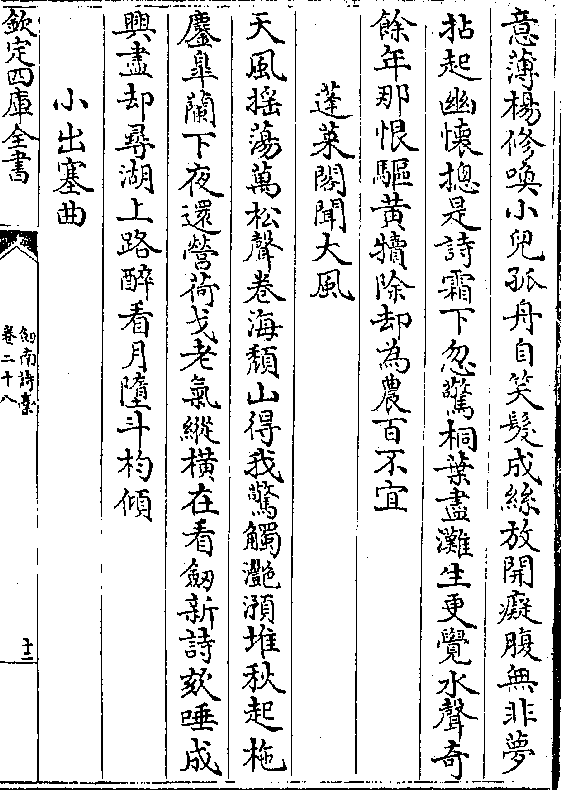 意薄楊修喚小兒孤舟自笑髮成絲放開癡腹無非夢
拈起幽懷揔是詩霜下忽驚桐葉盡灘生更覺水聲奇
餘年那恨驅黃犢除却為農百不宜
蓬萊閣聞大風
天風摇蕩萬松聲卷海頽山得我驚觸灔澦堆秋起柂
鏖臯蘭下夜還營荷戈老氣縱横在看劒新詩欬唾成
興盡却尋湖上路醉看月墮斗杓傾
小出塞曲
欽定四庫全書
劒南詩藁
卷二十八
十二